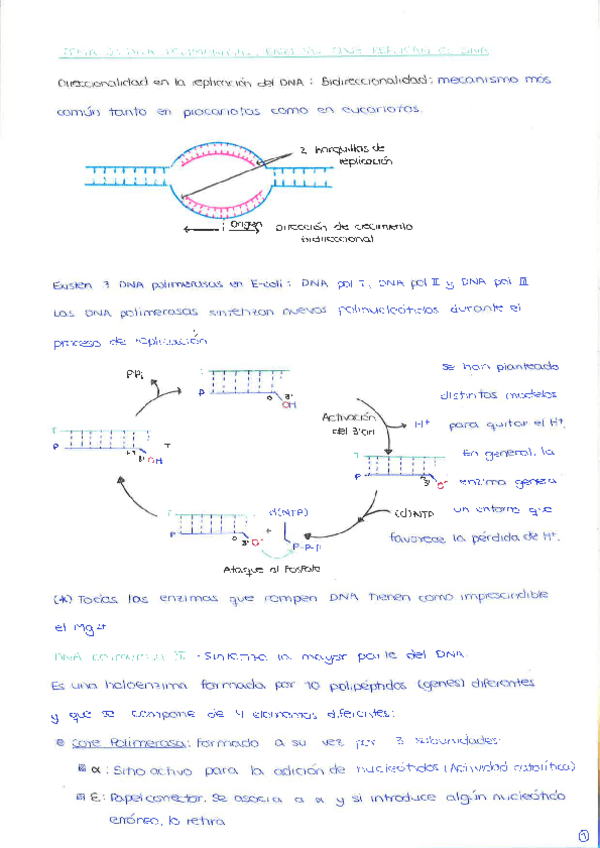 DNA REPLICAN EL DNA
Direccionalidad en la replicación del DNA: Bidireccionalidad: mecanismo más
común tanto en procariotas como en eucariotas.
2 horquillas de
replicación
Origen
Dirección de crecimiento
bidireccional
Existen 3 DNA polimerasas en E-coli: DNA pol I, DNA pol II y DNA pol III
Las DNA polimerasas sintetizan nuevos polinucleótidos durante el
proceso de replicación
PPi
T
P
3'
OH
Activación
del 3'OH
H+
Se han planteado
distintos modelos
para quitar el H+.
En general, la
enzima genera
un entorno que
favorece la pérdida de H+.
T
P
3'
OH
T
T
P
3'
O-
(d)NTP
T
P
3'
O-
+
d(NTP)
P-P-P
Ataque al fosfato
(*) Todas las enzimas que rompen DNA tienen como imprescindible
el Mg2+
DNA polimerasa III · Sintetiza la mayor parte del DNA.
Es una holoenzima formada por 10 polipéptidos (genes) diferentes
y que se compone de 4 elementos diferentes:
Core Polimerasa: Formado a su vez por 3 subunidades
α: Sitio activo para la adición de nucleótidos (Actividad catalítica)
E: Papel corrector. Se asocia a α y si introduce algún nucleótido
erróneo, lo retira
1